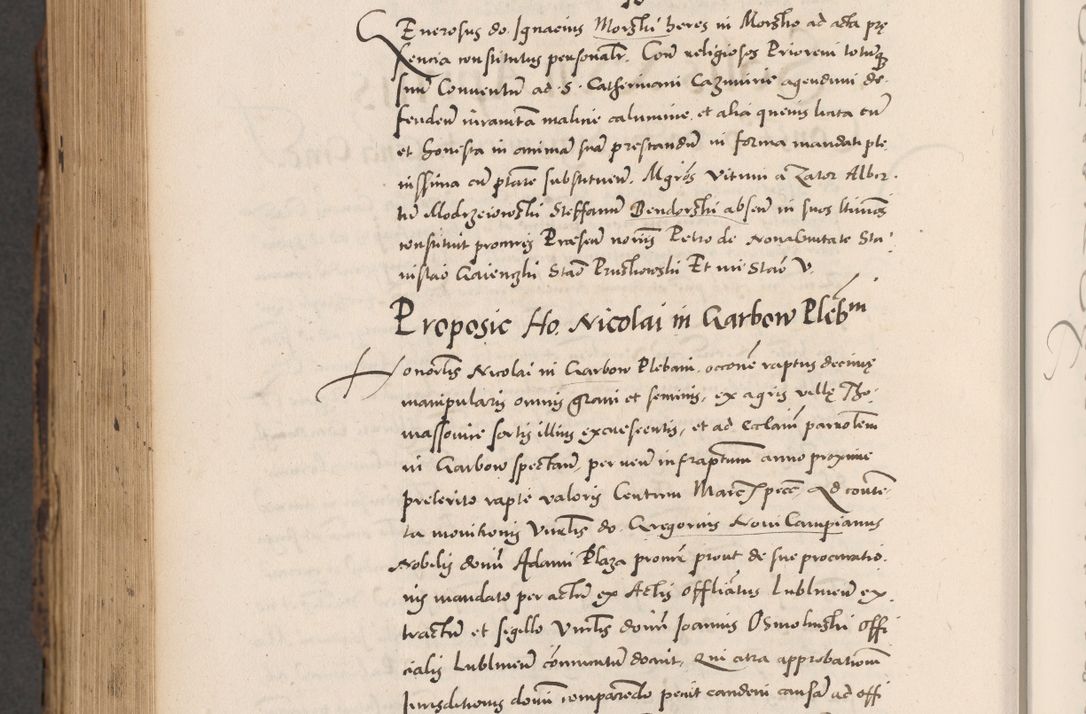 Generosus do. Ignacius Morski heres in Morsko ad acta prę
sencia constitutus personalr. Con religiosos Priorem totumq
suu Conventu ad S. Catherinam Cazimirie agendum de
fendeu iuramta malicie calumnie, et alia quevis licita cu
et honesta in animā suā prestandū in forma mandati ple
nissima cu ptate substituen. Mgros Vitum a Zator Alber
tu Modrzeiowski Steffanu Bendorski absen in suos
constituit procures Presen noriis Petro de Nova Civitate Sta
nislao Gaienski Stao Pruskowski Et mi Stao V.
Proposic Ho. Nicolai in Garbow Plebm
Honorlis Nicolai in Garbow Plebani, occone raptus decimę
manipularis omnis grani et seminis, ex agris villę Tho
massowice sortis illius excrescentis, et ad Ecclam parrolem
in Garbow spectan, per reum infraptum anno proxime
preterito rapte valoris Centum Marc pece Ad conten
ta monitionis Virilis do. Gregorius Novicampianus
Nobilis domi Adami Plaza procur prout de sue procuratio
nis mandato per actu ex Actis offliatus Lublineu ex
tractu et sigillo Virilis domi Joannis Osmolinski offi
cialis Lublineu comunitu docuit, Qui citra approbationem
Jurisditionis domi comparendo petiit eandem causam ad offi